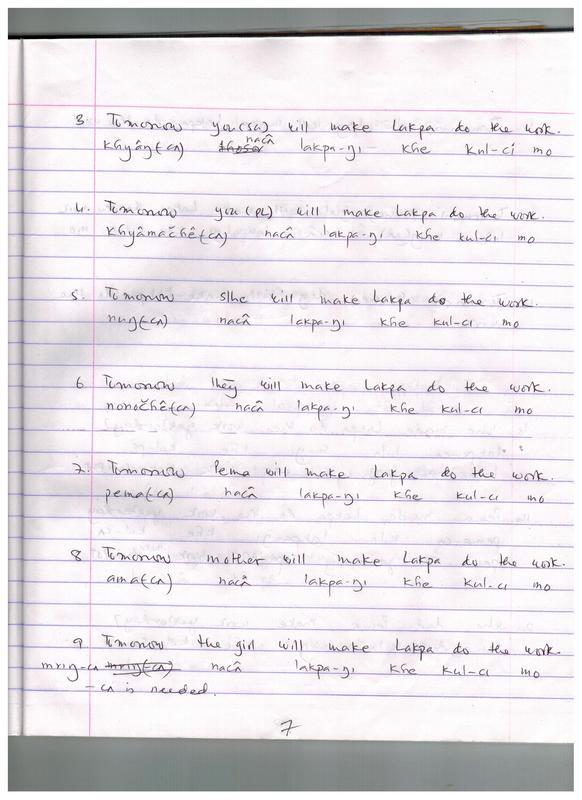 3. Tomorrow you(SG) will make Lakpa do the work.
nacâ
Khyâŋ(-cʌ) lakpa-ŋı khe kul-cı mo
4. Tomorrow you(PL) will make Lakpa do the work.
Khyâmačhê(-cʌ) nacâ lakpa-ŋı khe kul-cı mo
5. Tomorrow s/he will make Lakpa do the work.
nuŋ(-cʌ) nacâ lakpa-ŋı khe kul-cı mo
6. Tomorrow they will make Lakpa do the work.
nonočhê(-cʌ) nacâ lakpa-ŋı khe kul-cı mo
7. Tomorrow Pema will make Lakpa do the work.
pema(-cʌ) nacâ lakpa-ŋı khe kul-cı mo
8. Tomorrow mother will make Lakpa do the work.
ama(-cʌ) nacâ lakpa-ŋı khe kul-cı mo
9. Tomorrow the girl will make Lakpa do the work.
mrıŋ-cʌ mrıŋ(-cʌ) nacâ lakpa-ŋı khe kul-cı mo
-cʌ is needed.
7